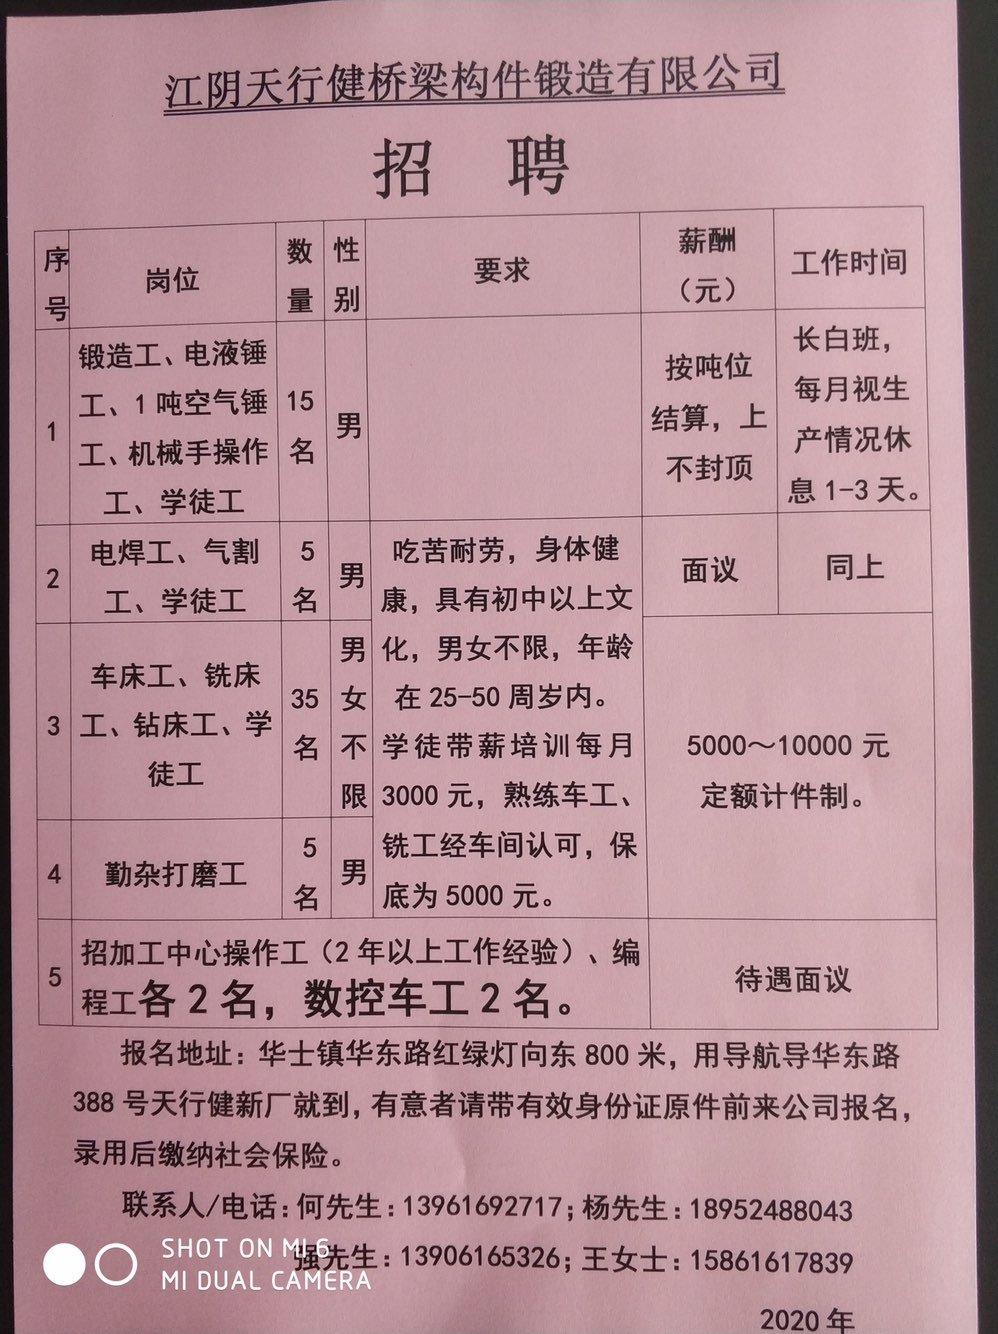 江阴天行健桥梁构件锻造有限公司
招 聘
序号 岗位 数量 性别 要求 薪酬（元） 工作时间
1 锻造工、电液锤工、1 吨空气锤工、机械手操作工、学徒工 15名 男 按吨位结算，上不封顶 长白班，每月视生产情况休息 1-3 天。
2 电焊工、气割工、学徒工 5名 男 面议 同上
3 车床工、铣床工、钻床工、学徒工 35名 男女不限
4 勤杂打磨工 5名 男
吃苦耐劳，身体健
康，具有初中以上文
化，男女不限，年龄
在 25-50 周岁内。
学徒带薪培训每月
3000 元，熟练车工、
铣工经车间认可，保
底为 5000 元。
5000～10000 元
定额计件制。
5 招加工中心操作工（2 年以上工作经验）、编
程工各 2 名，数控车工 2 名。 待遇面议
报名地址：华士镇华东路红绿灯向东 800 米，用导航导华东路
388 号天行健新厂就到，有意者请带有效身份证原件前来公司报名，
录用后缴纳社会保险。
联系人/电话：何先生：13961692717；杨先生：18952488043
强先生：13906165326；王女士：15861617839
2020 年
SHOT ON MI 6
MI DUAL CAMERA